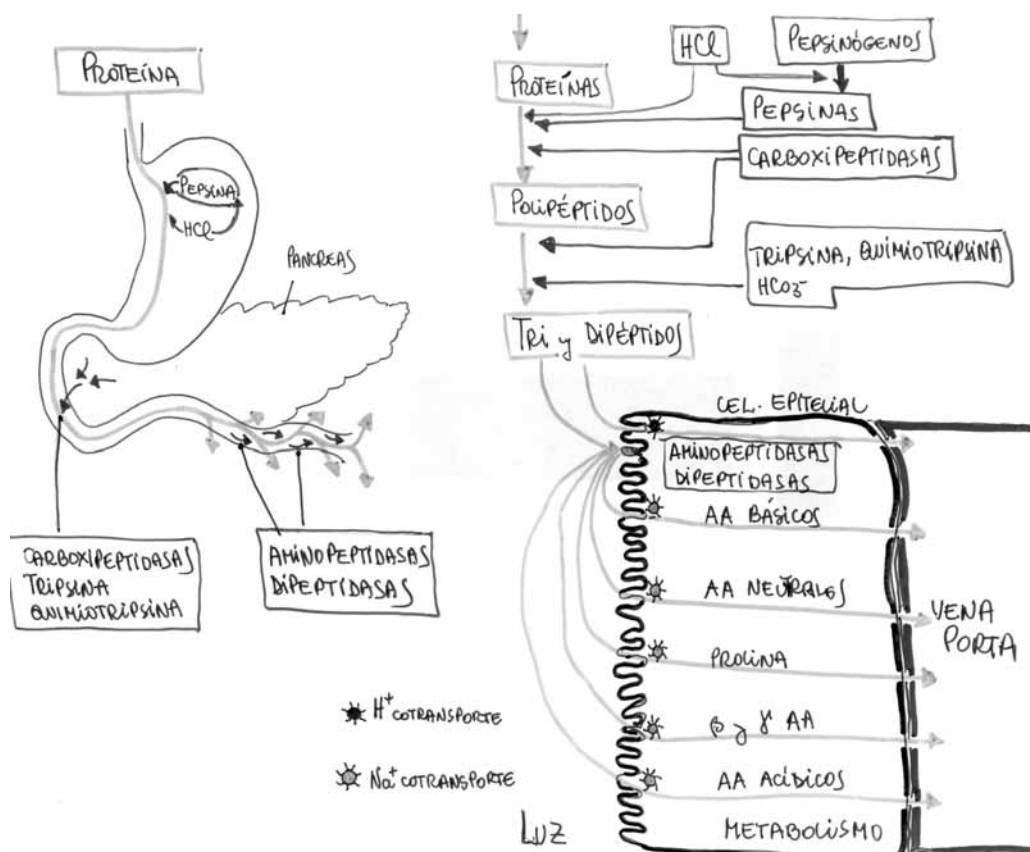 PROTEÍNA
PEPSINA
HCl
PÁNCREAS
CARBOXIPEPTIDASAS
TRIPSINA
QUIMIOTRIPSINA
AMINOPEPTIDASAS
DIPEPTIDASAS
H+ COTRANSPORTE
Na+ COTRANSPORTE
HCl
PEPSINÓGENOS
PROTEÍNAS
PEPSINAS
CARBOXIPEPTIDASAS
POLIPÉPTIDOS
TRIPSINA, QUIMIOTRIPSINA
HCO3-
TRI y DIPÉPTIDOS
CEL. EPITELIAL
AMINOPEPTIDASAS
DIPEPTIDASAS
AA BÁSICOS
AA NEUTRALES
VENA
PORTA
PROLINA
β y γ AA
AA ACÍDICOS
LUZ
METABOLISMO